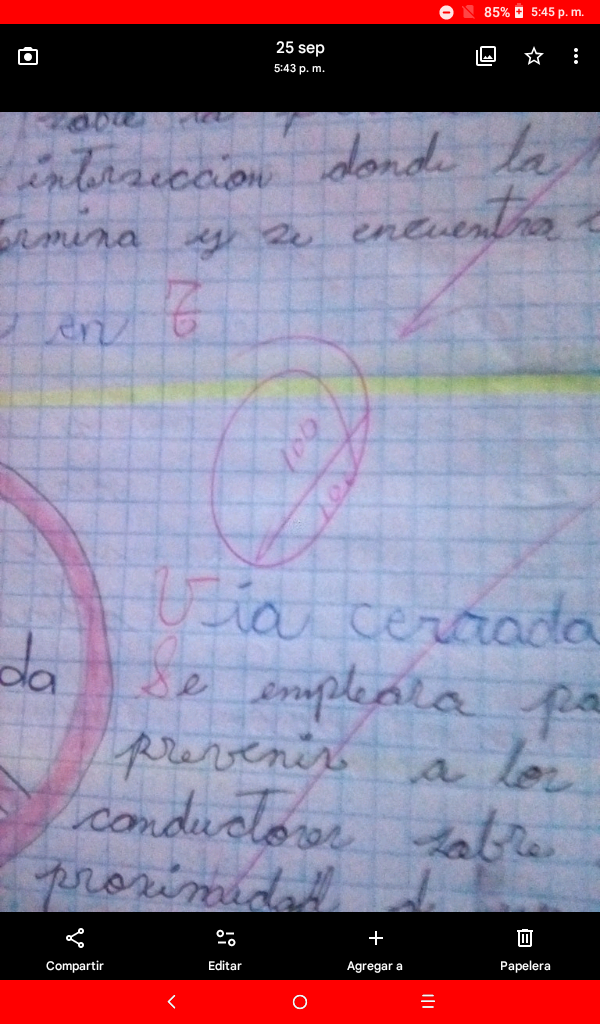 85% 5:45 p. m.
25 sep
5:43 p. m.
sobre la
intersección donde la
ermina y se encuentra
en T
100
100
Vía cerrada
da
Se empleara pa
prevenir a los
conductores sobre
proximidad d
Compartir
Editar
Agregar a
Papelera